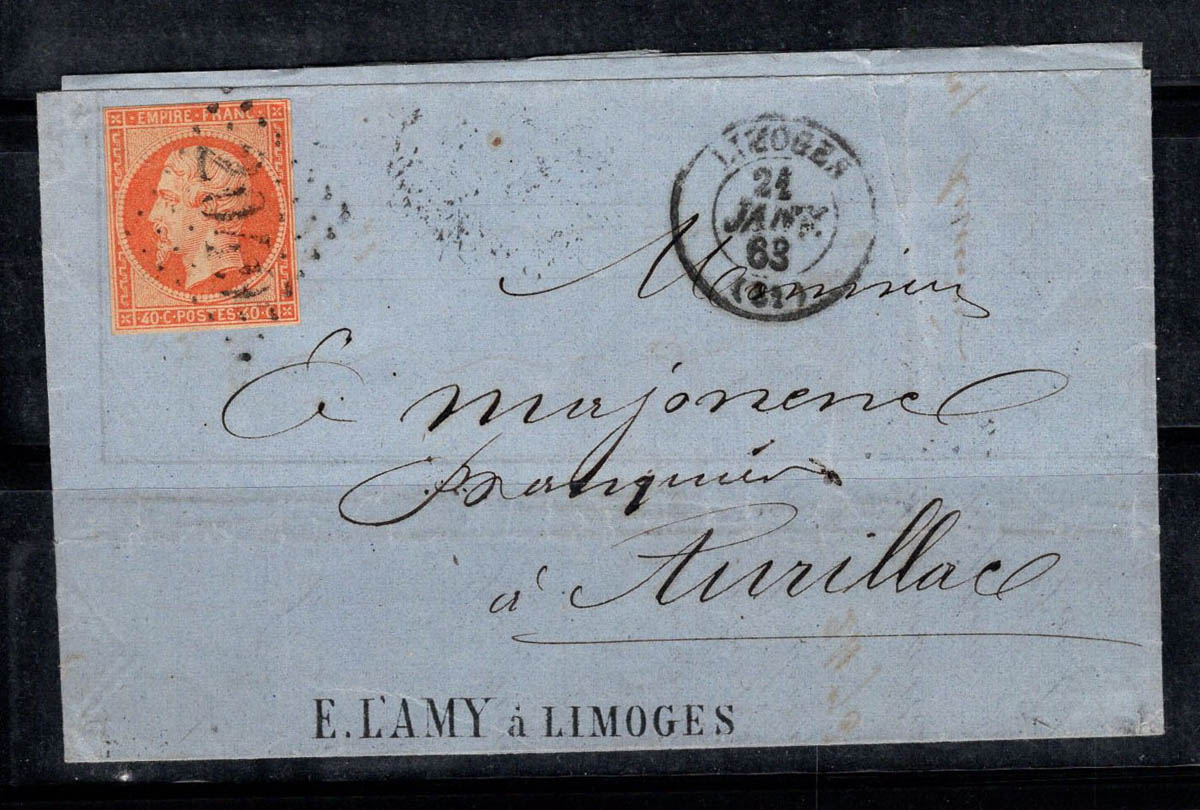 EMPIRE FRANC
40·C·POSTES·40·C
LIMOGES
21
JANV.
63
Monsieur
E Majonenc
Banquier
à Aurillac
E. L'AMY à LIMOGES